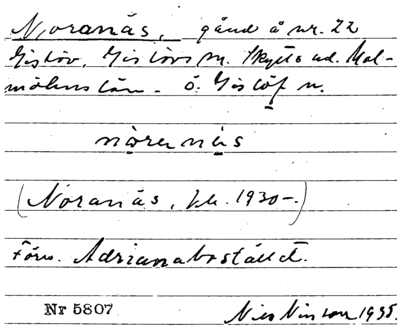 Noranäs, gård å nr. 22
Gislöv, Gislövs sn. Skytts hd. Mal-
möhus län. ö. Gislöf n.
nòrenä̀s
(Noranäs, kb. 1930-.)
Förr. Adrianabostället.
Nr 5807 Nils Nilsson 1935.